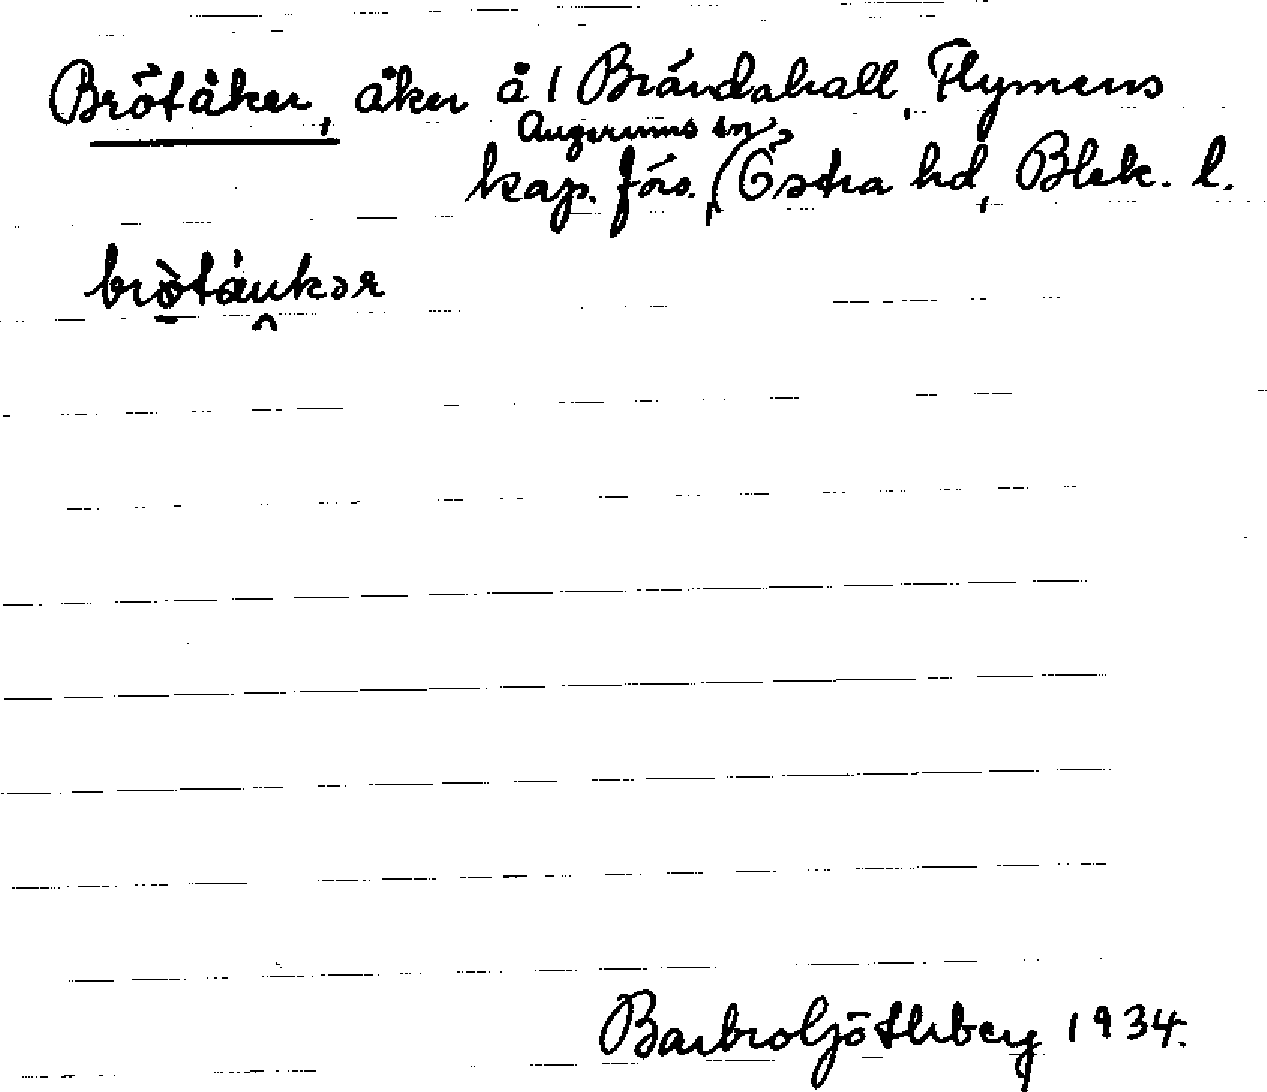 Brötåker, åker å 1 Brändahall, Flymens
Augerums sn,
kap. förs. (Östra hd, Blek. l.
bròtáukər
Barbro Götlberg 1934.